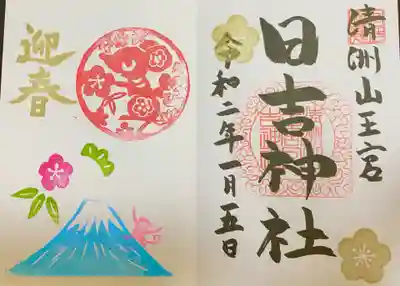 清洲山王宮
日吉神社
令和二年一月五日
迎春